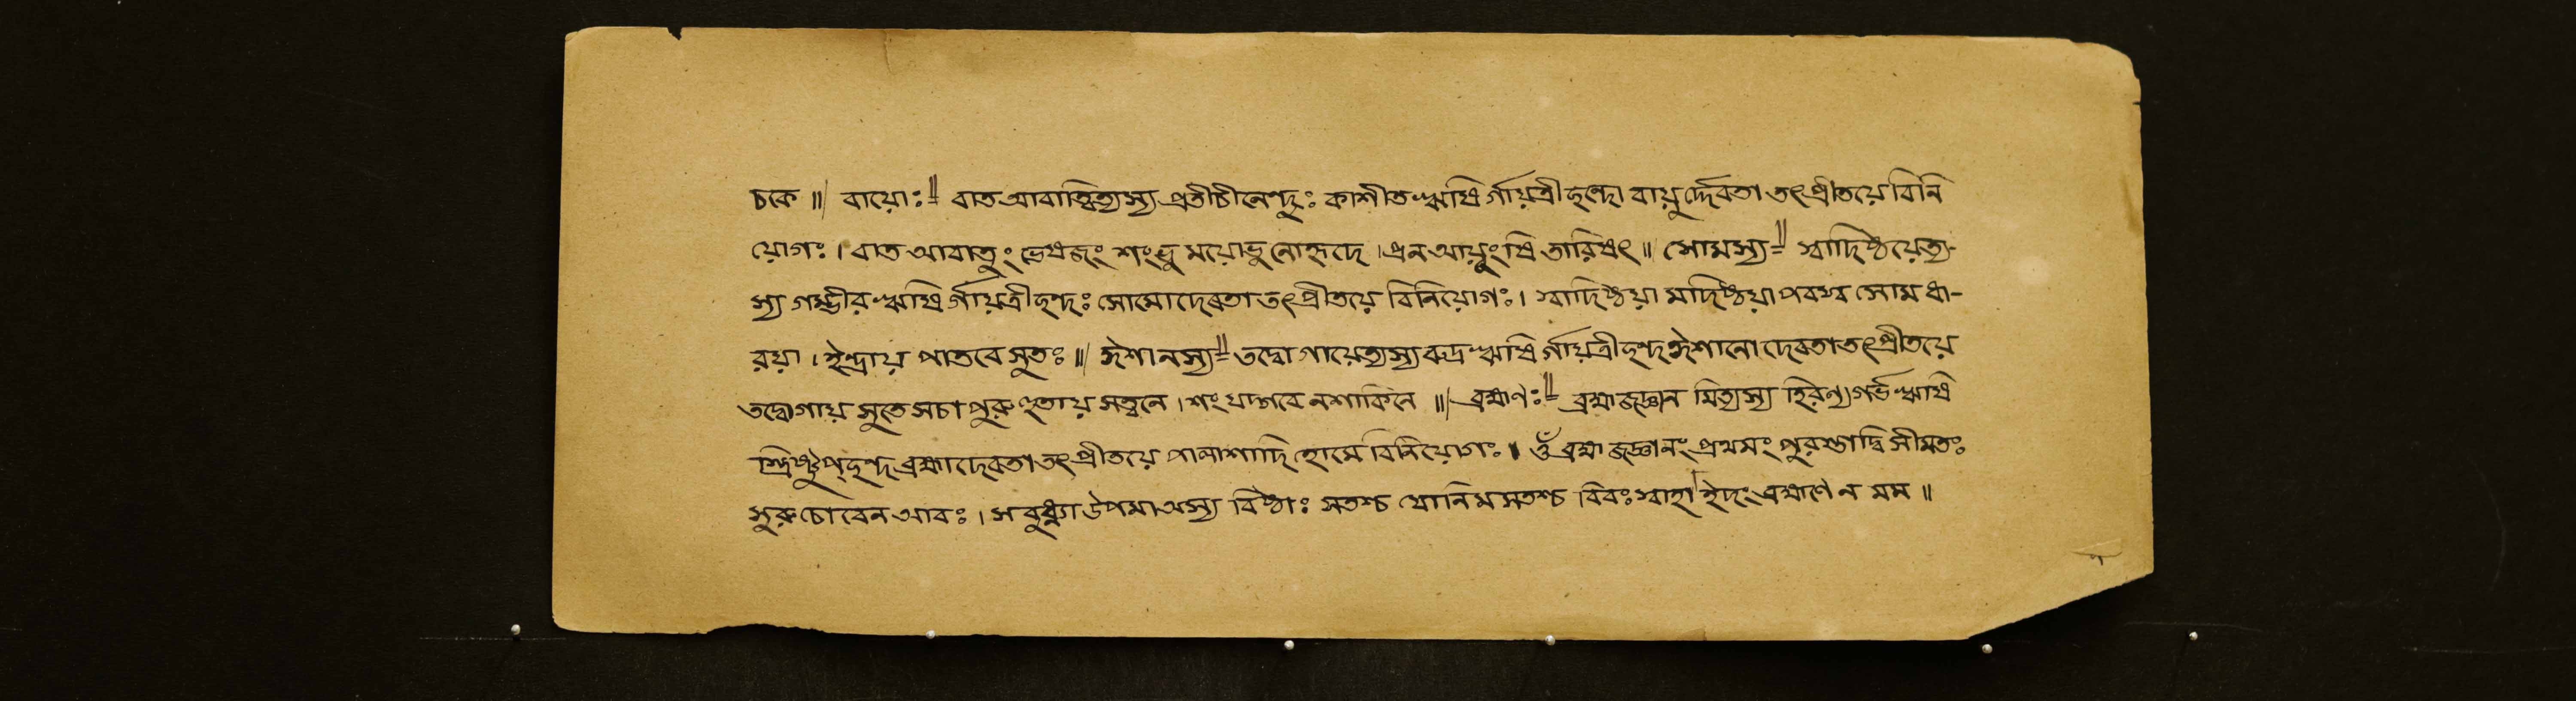 চকে ॥ বায়োঃ॥= বাত আবাত্বিত্যস্য প্রতীচীনেন্দুঃ কাশীত ঋষির্গায়ত্রীছন্দো বায়ুর্দ্দেবতা তৎপ্রীতয়ে বিনি
য়োগঃ । বাত আবাতুং ভেষজং শংভু ময়োভু নোহৃদে । প্রন আয়ুংষি তারিষৎ ॥ সোমস্য॥= স্বাদিষ্ঠয়েত্য-
স্য গম্ভীর ঋষির্গায়ত্রীছন্দঃ সোমোদেবতা তৎপ্রীতয়ে বিনিয়োগঃ । স্বাদিষ্ঠয়া মদিষ্ঠয়া পবস্ব সোম ধা-
রয়া । ইন্দ্রায় পাতবে সুতঃ ॥ ঈশানস্য॥= তদ্বোগায়েত্যস্য রুদ্র ঋষির্গায়ত্রীছন্দ ঈশানো দেবতা তৎপ্রীতয়ে
তদ্বোগায় সুতে সচা পুরুহুতায় সত্বনে । শং যদ্গবে নশাকিনে ॥ ব্রহ্মণঃ॥= ব্রহ্মজজ্ঞান মিত্যস্য হিরণ্যগর্ভ ঋষি
স্ত্রিষ্টুপ্ছন্দ ব্রহ্মাদেবতা তৎপ্রীতয়ে পালাশাদি হোমে বিনিয়োগঃ । ওঁ ব্রহ্মজজ্ঞানং প্রথমং পুরস্তাদ্বিসীমতঃ
সুরুচোবেন আবঃ । সবুধ্ন্যা উপমা অস্য বিষ্ঠাঃ সতশ্চ যোনিমসতশ্চ বিবঃ স্বাহা ইদং ব্রহ্মণে ন মম ॥